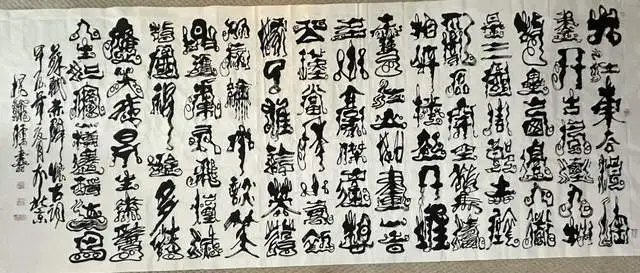 大江東去浪淘
盡千古風流人物
故壘西邊人道是
三國周郎赤壁
亂石穿空驚濤
拍岸捲起千堆
雪江山如畫一時
多少豪傑遙想
公瑾當年小喬初
嫁了雄姿英發
羽扇綸巾談笑
間檣櫓灰飛煙滅
故國神遊多情
應笑我早生華髮
人生如夢一尊還酹江月
蘇軾赤壁懷古詞
甲辰年夏月於北京